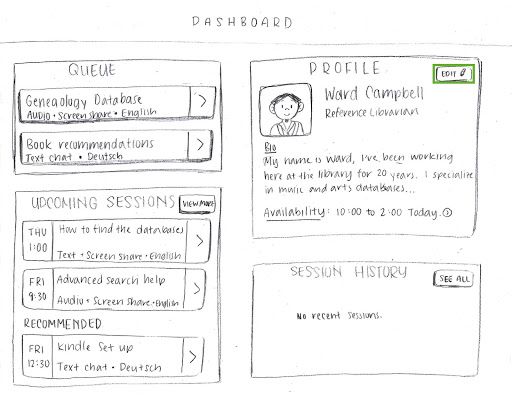 DASHBOARD
QUEUE
Geneaology Database
AUDIO • Screen share • English
Book recommendations
Text chat • Deutsch
UPCOMING SESSIONS
VIEW MORE
THU
1:00
How to find the databases
Text • Screen share • English
FRI
9:30
Advanced search help
Audio • Screen share • English
RECOMMENDED
FRI
12:30
Kindle Set up
Text chat • Deutsch
PROFILE
EDIT
Ward Campbell
Reference Librarian
Bio
My name is Ward, I've been working
here at the library for 20 years. I specialize
in music and arts databases...
Availability: 10:00 to 2:00 Today.
SESSION HISTORY
SEE ALL
No recent sessions.